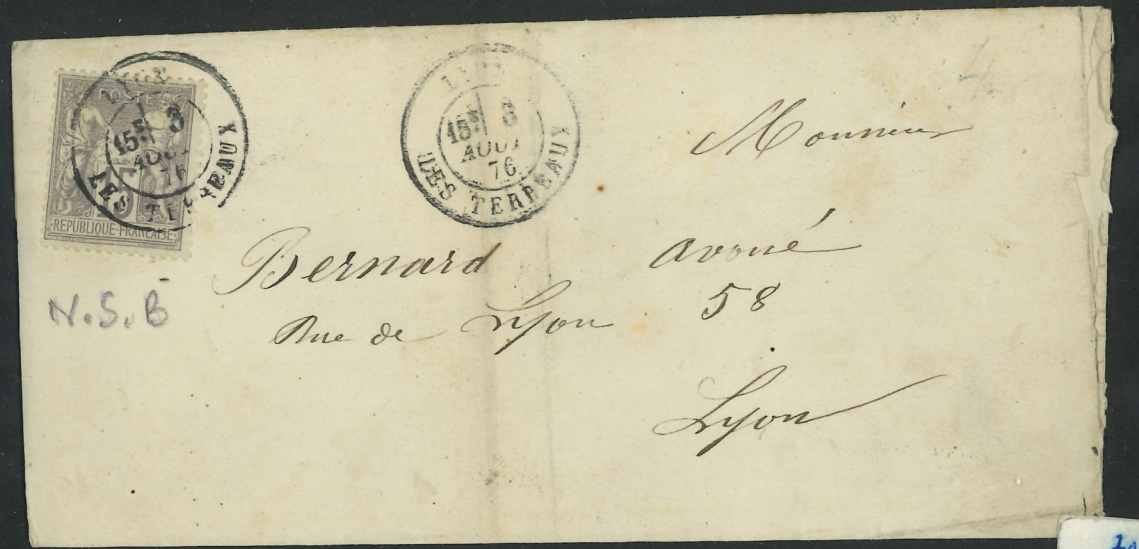 POSTES
REPUBLIQUE FRANÇAISE
LYON
15E 3
AOUT
76
LES TERREAUX
LYON
15E 3
AOUT
76
LES TERREAUX
Monsieur
Bernard avoué
Rue de Lyon 58
Lyon
N.S.B